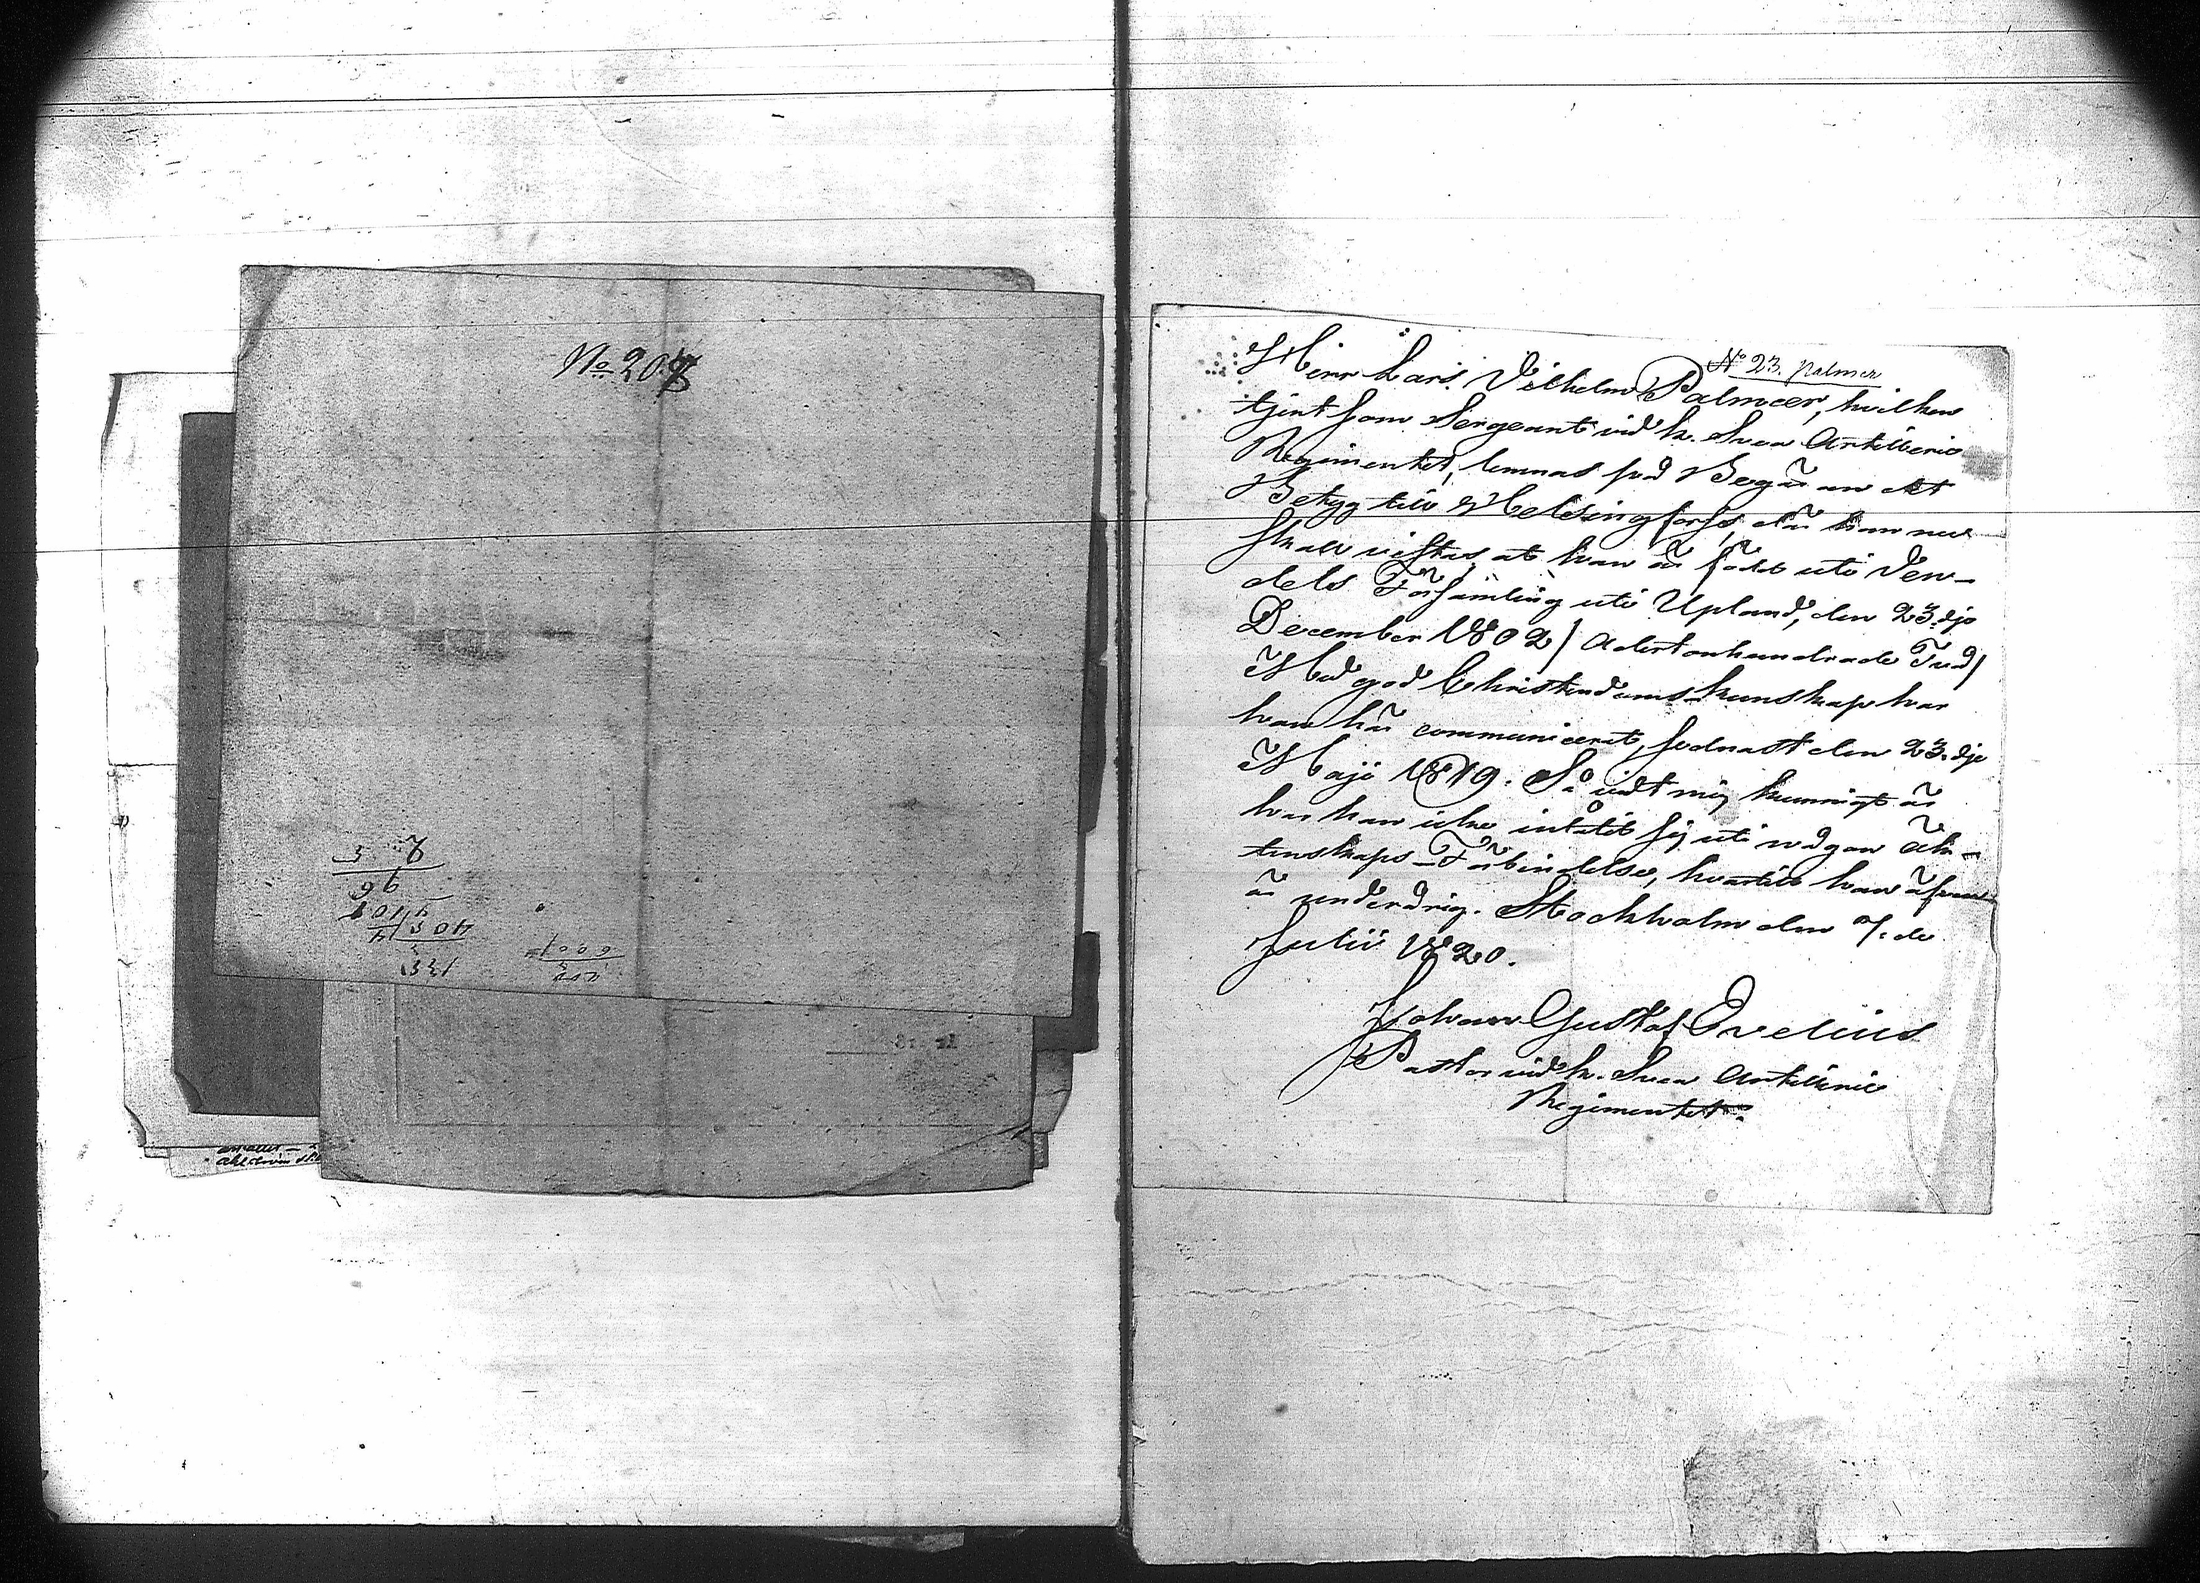 No 207
N:o 23. Palmer
Herr Lars Vilhelm Palmær, hvilken
tjent som Sergeant vid k. Svea Artilleri
Regimentet, lemnas på Begäran det
Betyg till Helsingfors, där han nu
skall vistas, at han är född uti Ven-
dels Församling uti Upland, den 23:dje
December 1802 / Adertonhundrade Två /
Med god Christendomskunskap har
han här communicerat, sednast den 23:dje
Maji 1819. Så vidt mig kunnigt är
har han icke inlåtit sig uti någon Äk-
tenskaps-Förbindelse, hvartill han äfven
är underårig. Stockholm den 7:de
Julii 1820.
Johan Gustaf
Pastor vid k. Svea Artilleri
Regimentet.